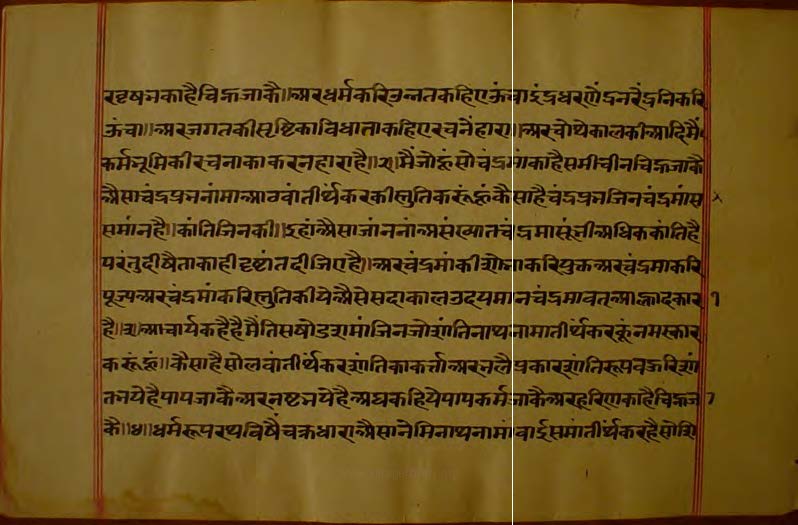 र वृषभकाहैचिह्नजाकै॥अरधर्मकरिउन्नतकहिएऊंचाइंद्रधरणेंद्रनरेंद्रनिकरि
ऊंचा॥अरजगतकीसृष्टिकाविधाताकहिएरचनेंहारा॥अरचोथेकालकीआदिमैं
कर्मभूमिकीरचनाकाकरनहाराहै॥२॥मैंजोहूंसोचंद्रमांकाहैसमीचीनचिह्नजाकै
अैसाचंद्रप्रभनांमाआठवांतीर्थंकरकीस्तुतिकरूंहूंकैसाहैचंद्रप्रभजिनचंद्रमांस
समांनहै॥कांतिजिनकी॥इहांअैसाजांननांअसंख्यातचंद्रमासूंभीअधिककांतिहै
परंतुदीषैताकाहीदृष्टांतदीजिएहै॥अरचंद्रमांकीशोभाकरियुक्तअरचंद्रमाकरि
पूज्यअरचंद्रमांकरिस्तुतिकीयेअैसेसदाकालउदयमानचंद्रमावतआल्हादकार
है॥३॥आचार्यकहैहैमैंतिसषोडशमांजिनजोशांतिनाथनामातीर्थंकरकूंनमस्कार
करूंहूं॥कैसाहैसोलवांतीर्थंकरशांतिकाकर्त्ताअरभलैप्रकारशांतिरूपवऊरिशां
तभयेहैपापजाकैअरनष्टभयेहैअघकहियेपापकर्मजाकैअरहरिणकाहैचिह्नज
कै॥४॥धर्मरूपरथविषैंचक्रधाराअैसानेमिनाथनामांबाईसमांतीर्थंकरहैसोशि